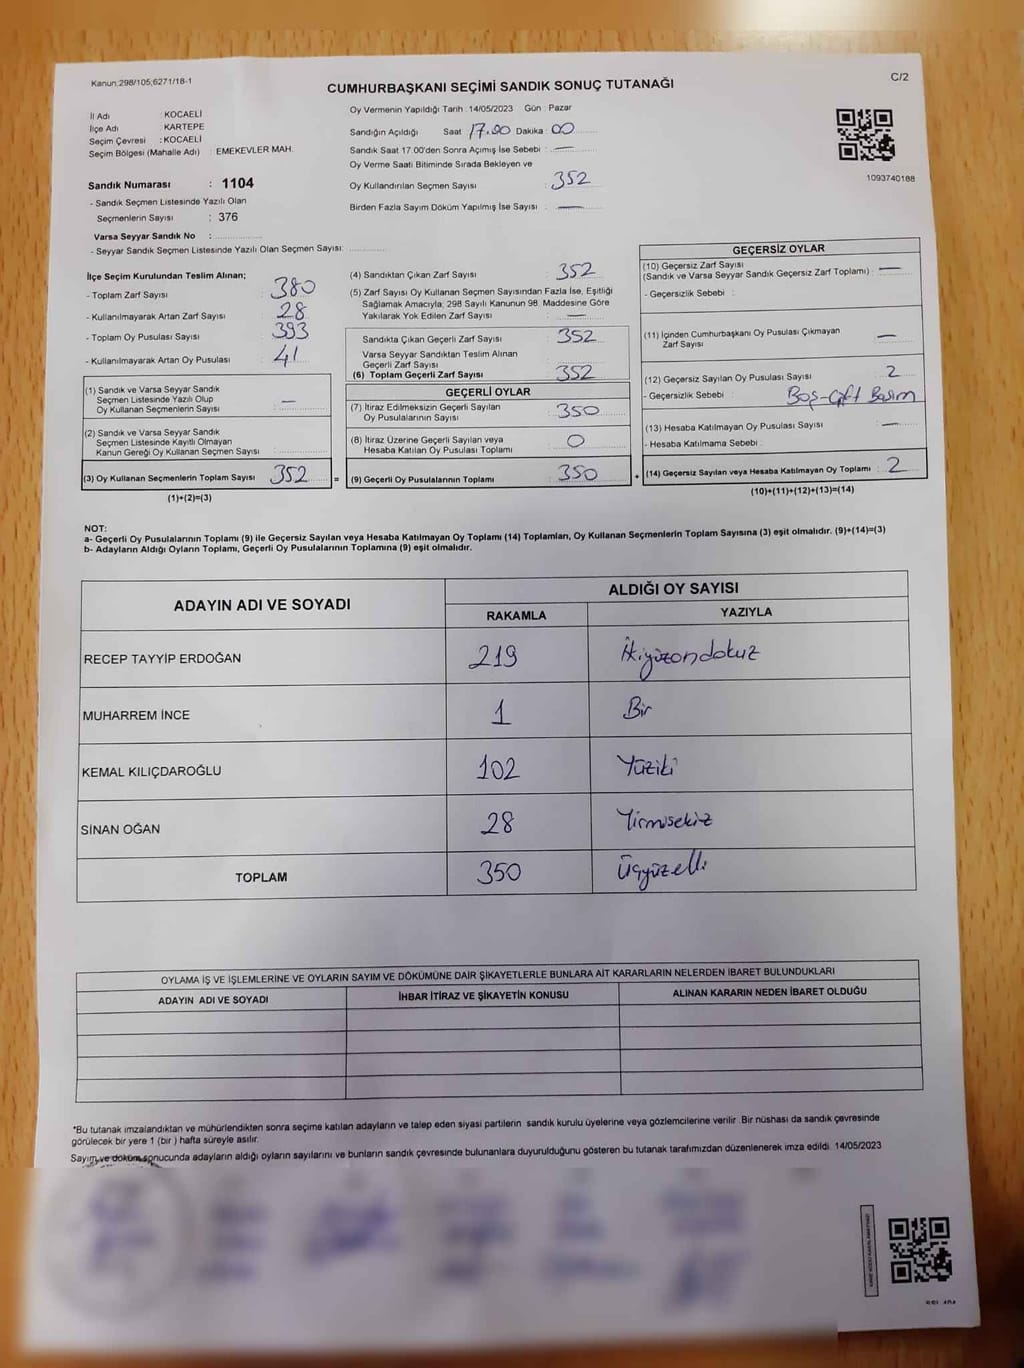 Kanun:298/105;6271/18-1
C/2
CUMHURBAŞKANI SEÇİMİ SANDIK SONUÇ TUTANAĞI
İl Adı : KOCAELİ
İlçe Adı : KARTEPE
Seçim Çevresi : KOCAELİ
Seçim Bölgesi (Mahalle Adı) : EMEKEVLER MAH.
Sandık Numarası : 1104
- Sandık Seçmen Listesinde Yazılı Olan
Seçmenlerin Sayısı : 376
Varsa Seyyar Sandık No :
- Seyyar Sandık Seçmen Listesinde Yazılı Olan Seçmen Sayısı:
Oy Vermenin Yapıldığı Tarih : 14/05/2023 Gün : Pazar
Sandığın Açıldığı Saat 17.00 Dakika : 00
Sandık Saat 17.00'den Sonra Açımış İse Sebebi : —
Oy Verme Saati Bitiminde Sırada Bekleyen ve
Oy Kullandırılan Seçmen Sayısı : 352
Birden Fazla Sayım Döküm Yapılmış İse Sayısı : —
1093740188
İlçe Seçim Kurulundan Teslim Alınan;
- Toplam Zarf Sayısı : 380
- Kullanılmayarak Artan Zarf Sayısı : 28
- Toplam Oy Pusulası Sayısı : 393
- Kullanılmayarak Artan Oy Pusulası : 41
(1) Sandık ve Varsa Seyyar Sandık
Seçmen Listesinde Yazılı Olup
Oy Kullanan Seçmenlerin Sayısı : —
(2) Sandık ve Varsa Seyyar Sandık
Seçmen Listesinde Kayıtlı Olmayan
Kanun Gereği Oy Kullanan Seçmen Sayısı :
(3) Oy Kullanan Seçmenlerin Toplam Sayısı : 352
(1)+(2)=(3)
(4) Sandıktan Çıkan Zarf Sayısı : 352
(5) Zarf Sayısı Oy Kullanan Seçmen Sayısından Fazla İse, Eşitliği
Sağlamak Amacıyla, 298 Sayılı Kanunun 98. Maddesine Göre
Yakılarak Yok Edilen Zarf Sayısı : —
Sandıkta Çıkan Geçerli Zarf Sayısı : 352
Varsa Seyyar Sandıktan Teslim Alınan
Geçerli Zarf Sayısı :
(6) Toplam Geçerli Zarf Sayısı : 352
GEÇERLİ OYLAR
(7) İtiraz Edilmeksizin Geçerli Sayılan
Oy Pusulalarının Sayısı : 350
(8) İtiraz Üzerine Geçerli Sayılan veya
Hesaba Katılan Oy Pusulası Toplamı : 0
= (9) Geçerli Oy Pusulalarının Toplamı : 350 +
GEÇERSİZ OYLAR
(10) Geçersiz Zarf Sayısı
(Sandık ve Varsa Seyyar Sandık Geçersiz Zarf Toplamı) : —
- Geçersizlik Sebebi :
(11) İçinden Cumhurbaşkanı Oy Pusulası Çıkmayan
Zarf Sayısı : —
(12) Geçersiz Sayılan Oy Pusulası Sayısı : 2
- Geçersizlik Sebebi : Boş-Çift Basım
(13) Hesaba Katılmayan Oy Pusulası Sayısı : —
- Hesaba Katılmama Sebebi :
(14) Geçersiz Sayılan veya Hesaba Katılmayan Oy Toplamı : 2
(10)+(11)+(12)+(13)=(14)
NOT:
a- Geçerli Oy Pusulalarının Toplamı (9) ile Geçersiz Sayılan veya Hesaba Katılmayan Oy Toplamı (14) Toplamları, Oy Kullanan Seçmenlerin Toplam Sayısına (3) eşit olmalıdır. (9)+(14)=(3)
b- Adayların Aldığı Oyların Toplamı, Geçerli Oy Pusulalarının Toplamına (9) eşit olmalıdır.
ADAYIN ADI VE SOYADI
ALDIĞI OY SAYISI
RAKAMLA YAZIYLA
RECEP TAYYİP ERDOĞAN 219 İkiyüzondokuz
MUHARREM İNCE 1 Bir
KEMAL KILIÇDAROĞLU 102 Yüziki
SİNAN OĞAN 28 Yirmisekiz
TOPLAM 350 Üçyüzelli
OYLAMA İŞ VE İŞLEMLERİNE VE OYLARIN SAYIM VE DÖKÜMÜNE DAİR ŞİKAYETLERLE BUNLARA AİT KARARLARIN NELERDEN İBARET BULUNDUKLARI
ADAYIN ADI VE SOYADI İHBAR İTİRAZ VE ŞİKAYETİN KONUSU ALINAN KARARIN NEDEN İBARET OLDUĞU
*Bu tutanak imzalandıktan ve mühürlendikten sonra seçime katılan adayların ve talep eden siyasi partilerin sandık kurulu üyelerine veya gözlemcilerine verilir. Bir nüshası da sandık çevresinde
görülecek bir yere 1 (bir ) hafta süreyle asılır.
Sayım ve döküm sonucunda adayların aldığı oyların sayılarını ve bunların sandık çevresinde bulunanlara duyurulduğunu gösteren bu tutanak tarafımızdan düzenlenerek imza edildi. 14/05/2023